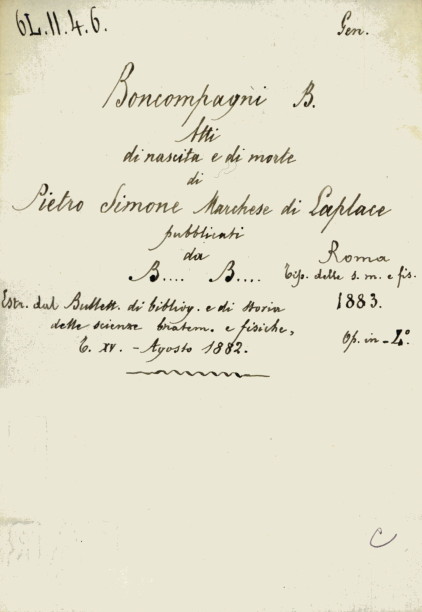 6L.11.4.6.
Gen.
Boncompagni B.
Atti
di nascita e di morte
di
Pietro Simone Marchese di Laplace
pubblicati
da
B.... B....
Roma
Tip. delle s. m. e fis.
1883.
Estr. dal Bullett. di bibliog. e di storia
delle scienze matem. e fisiche,
T. XV. - Agosto 1882.
Op. in-4°.
C